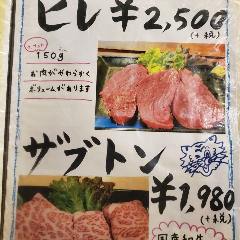 ヒレ ¥2,500
(+税)
150g
お肉がやわらかく
ボリュームがあります
ザブトン
¥1,980
(+税)
国産和牛